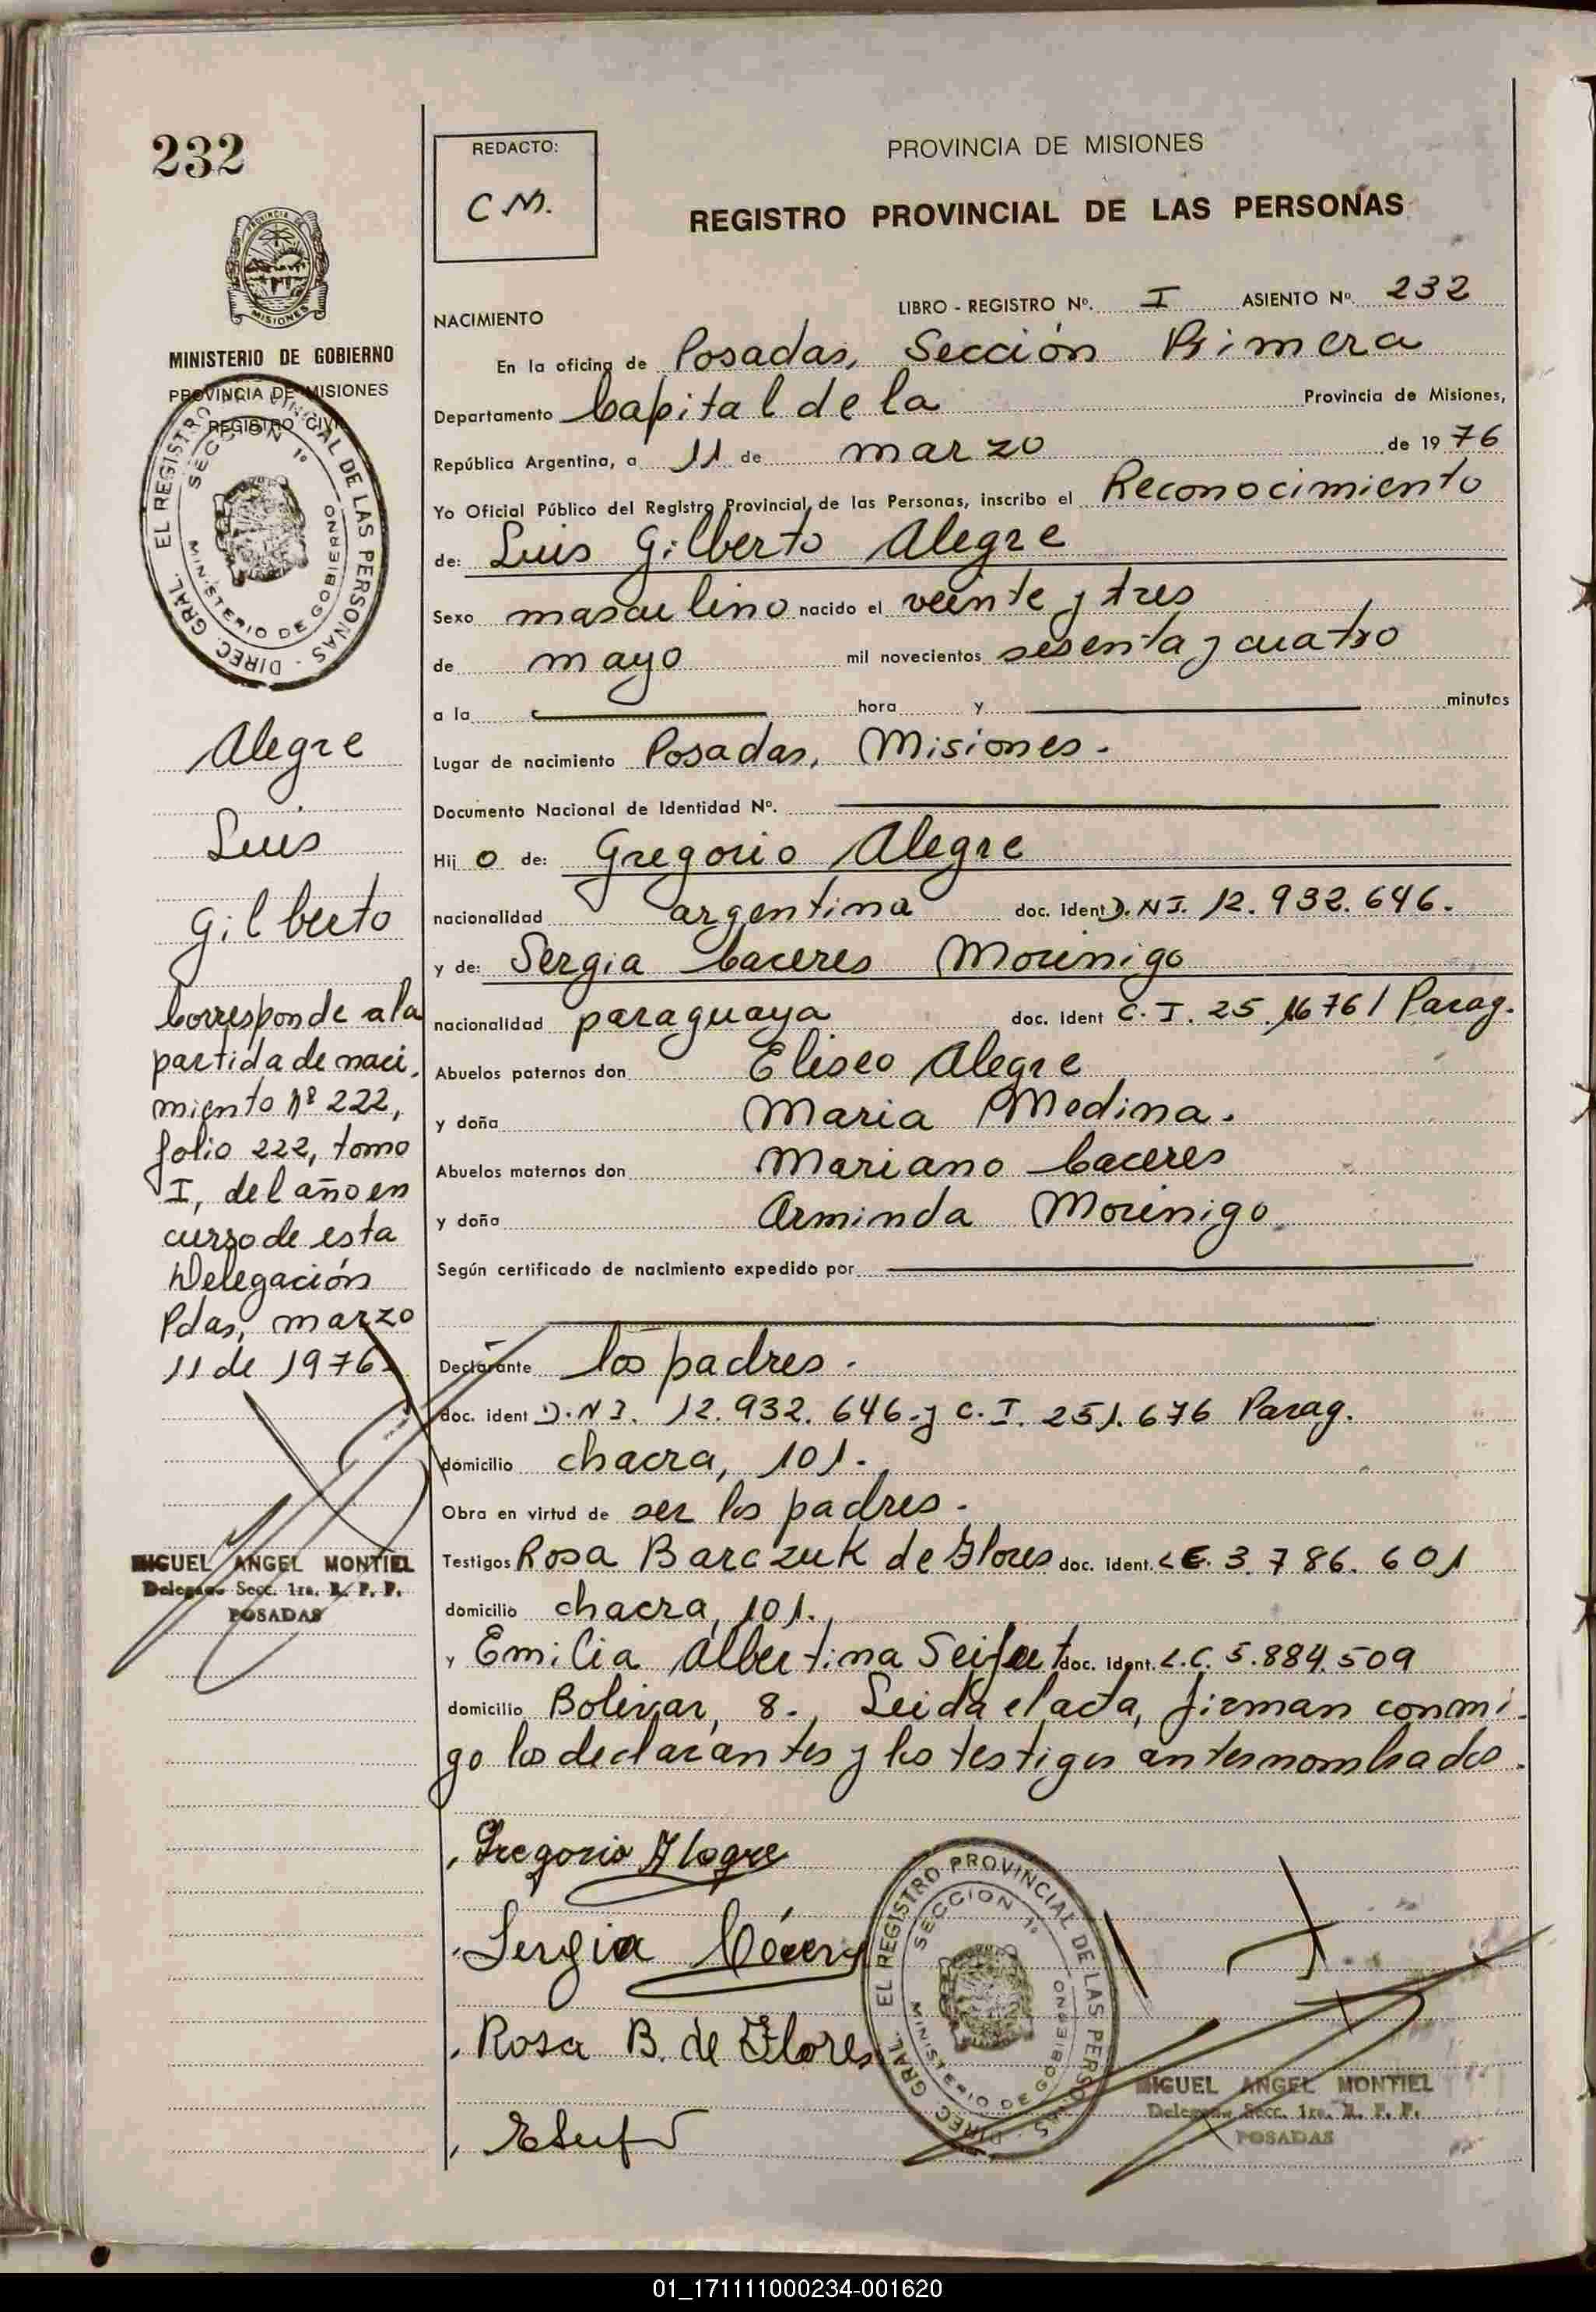 232
PROVINCIA DE
MISIONES
MINISTERIO DE GOBIERNO
PROVINCIA DE MISIONES
REGISTRO CIVIL
DIREC. GRAL. EL REGISTRO PROVINCIAL DE LAS PERSONAS
SECCION 1º
MINISTERIO DE GOBIERNO
Alegre
Luis
Gilberto
Corresponde a la
partida de naci.
miento Nº 222,
folio 222, tomo
I, del año en
curso de esta
Delegación
Pdas, marzo
11 de 1976.
MIGUEL ANGEL MONTIEL
Delegado Secc. 1ra. R. P. P.
POSADAS
REDACTO:
C M.
PROVINCIA DE MISIONES
REGISTRO PROVINCIAL DE LAS PERSONAS
LIBRO - REGISTRO Nº. I ASIENTO Nº. 232
NACIMIENTO
En la oficina de Posadas, Sección Primera
Departamento Capital de la Provincia de Misiones,
República Argentina, a 11 de marzo de 1976
Yo Oficial Público del Registro Provincial de las Personas, inscribo el Reconocimiento
de: Luis Gilberto Alegre
Sexo masculino nacido el veinte y tres
de mayo mil novecientos sesenta y cuatro
a la hora y minutos
Lugar de nacimiento Posadas, Misiones.
Documento Nacional de Identidad Nº.
Hijo de: Gregorio Alegre
nacionalidad argentina doc. ident D.N.I. 12.932.646.
y de: Sergia Caceres Morinigo
nacionalidad paraguaya doc. ident C.I. Parag.
Abuelos paternos don Eliseo Alegre
y doña Maria Medina.
Abuelos maternos don Mariano Caceres
y doña Arminda Morinigo
Según certificado de nacimiento expedido por
Declarante los padres.
doc. ident D.N.I. 12.932.646. y C.I. 251.676 Parag.
domicilio chacra, 101.
Obra en virtud de ser los padres.
Testigos Rosa Barczuk de Flores doc. ident. L.E. 3.786.601
domicilio chacra, 101.
y Emilia Albertina Seifert doc. ident. L.C. 5.884.509
domicilio Bolivar, 8. Leida el acta, firman conmi.
go los declarantes y los testigos antes nombrados.
Gregorio Alegre
Sergia Cáceres
Rosa B. de Flores
DIREC. GRAL. EL REGISTRO PROVINCIAL DE LAS PERSONAS
SECCION 1º
MINISTERIO DE GOBIERNO
MIGUEL ANGEL MONTIEL
Delegado Secc. 1ra. R. P. P.
POSADAS
01_171111000234-001620